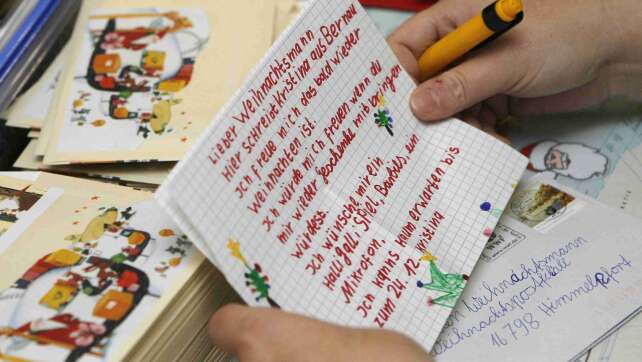 Lieber Weihnachtsmann
Hier schreibt Kristina aus Bernau
Ich freue mich das bald wieder
Weihnachten ist.
Ich würde mich freuen wenn du
mir wieder Geschenke mitbringen
würdest.
Ich wünsche mir ein
Halli Galli Spiel, Barbies, ein
Mikrofon,
Ich kanns kaum erwarten bis
zum 24.12. Kristina
Weihnachtsmann
Weihnachtspostfiliale
16798 Himmelpfort